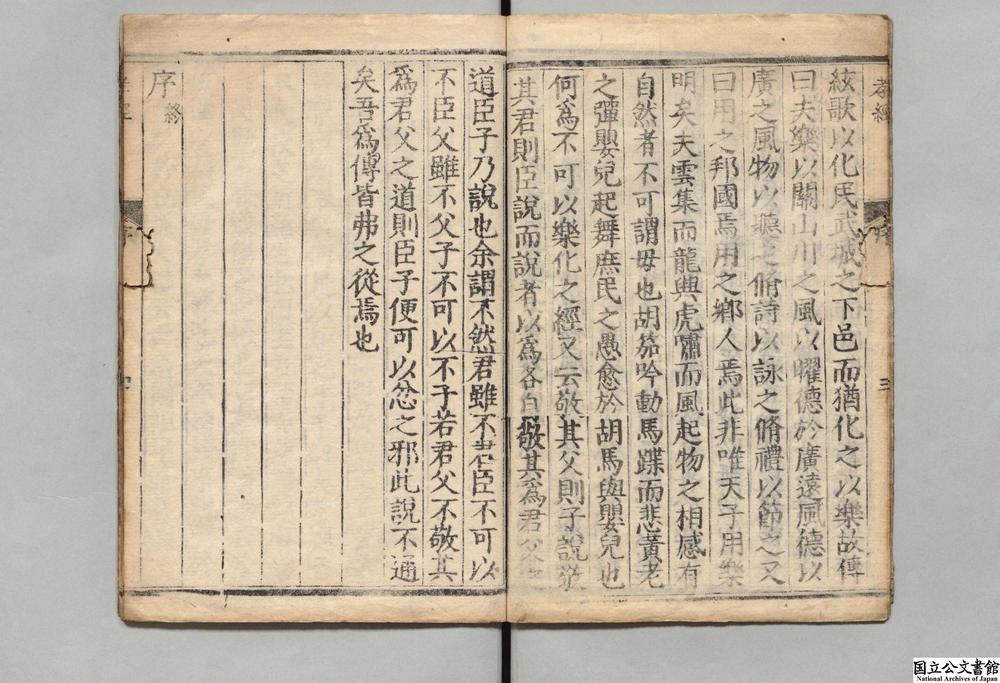 孝經
序
三
絃歌以化民武城之下邑而猶化之以樂故傳
曰夫樂以關山川之風以曜德於廣遠風德以
廣之風物以聽之脩詩以詠之脩禮以節之又
曰用之邦國焉用之鄉人焉此非唯天子用樂
明矣夫雲集而龍興虎嘯而風起物之相感有
自然者不可謂毋也胡笳吟動馬蹀而悲黃老
之彈嬰兒起舞庶民之愚愈於胡馬與嬰兒也
何爲不可以樂化之經又云敬其父則子說敬
其君則臣說而說者以爲各自敬其爲君父之
道臣子乃說也余謂不然君雖不君臣不可以
不臣父雖不父子不可以不子若君父不敬其
爲君父之道則臣子便可以忿之邪此說不通
矣吾爲傳皆弗之從焉也
序終
国立公文書館
National Archives of Japan